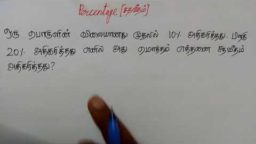 Percentage [சதவீதம்]
ஒரு பொருளின் விலையானது முதலில் 10% அதிகரித்தது. பிறகு
20% அதிகரித்தது எனில் அது மொத்தம் எத்தனை சதவீதம்
அதிகரித்தது?